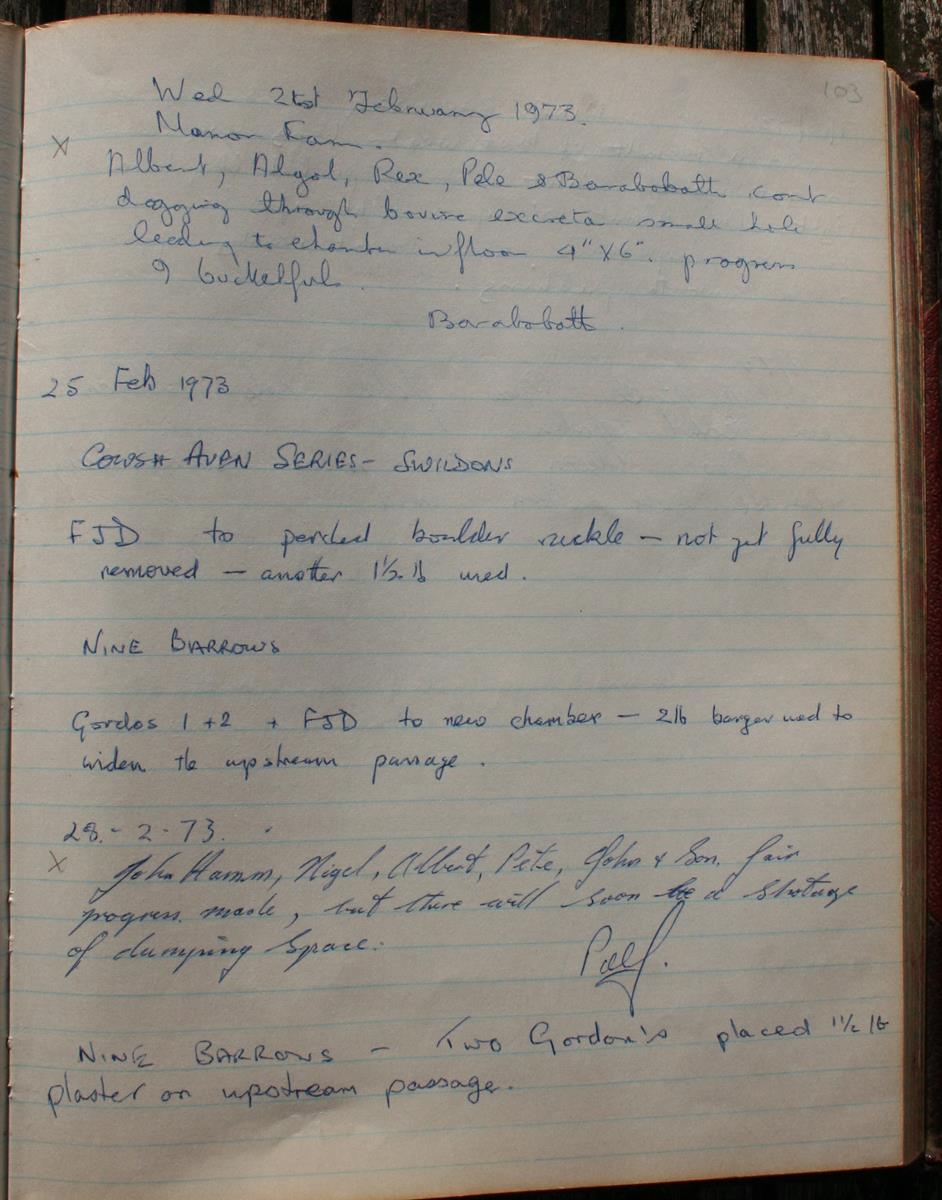 103
Wed 21st February 1973.
Manor Farm.
X
Albert, Algol, Rex, Pele & Barabobatts cont
digging through bovine excreta small hole
leading to chamber in floor 4" X 6". progress
9 bucketfuls.
Barabobatts.
25 Feb 1973
COWSH AVEN SERIES - SWILDONS
FJD to perched boulder ruckle - not yet fully
removed - another 1½ lb used.
NINE BARROWS
Gordos 1 + 2 + FJD to new chamber - 2lb banger used to
widen the upstream passage.
28.-2-73.
X
John Hamm, Nigel, Albert, Pete, John & Son. fair
progress made, but there will soon be a shotage
of dumping space.
NINE BARROWS - Two Gordon's placed 1½ lb
plaster on upstream passage.